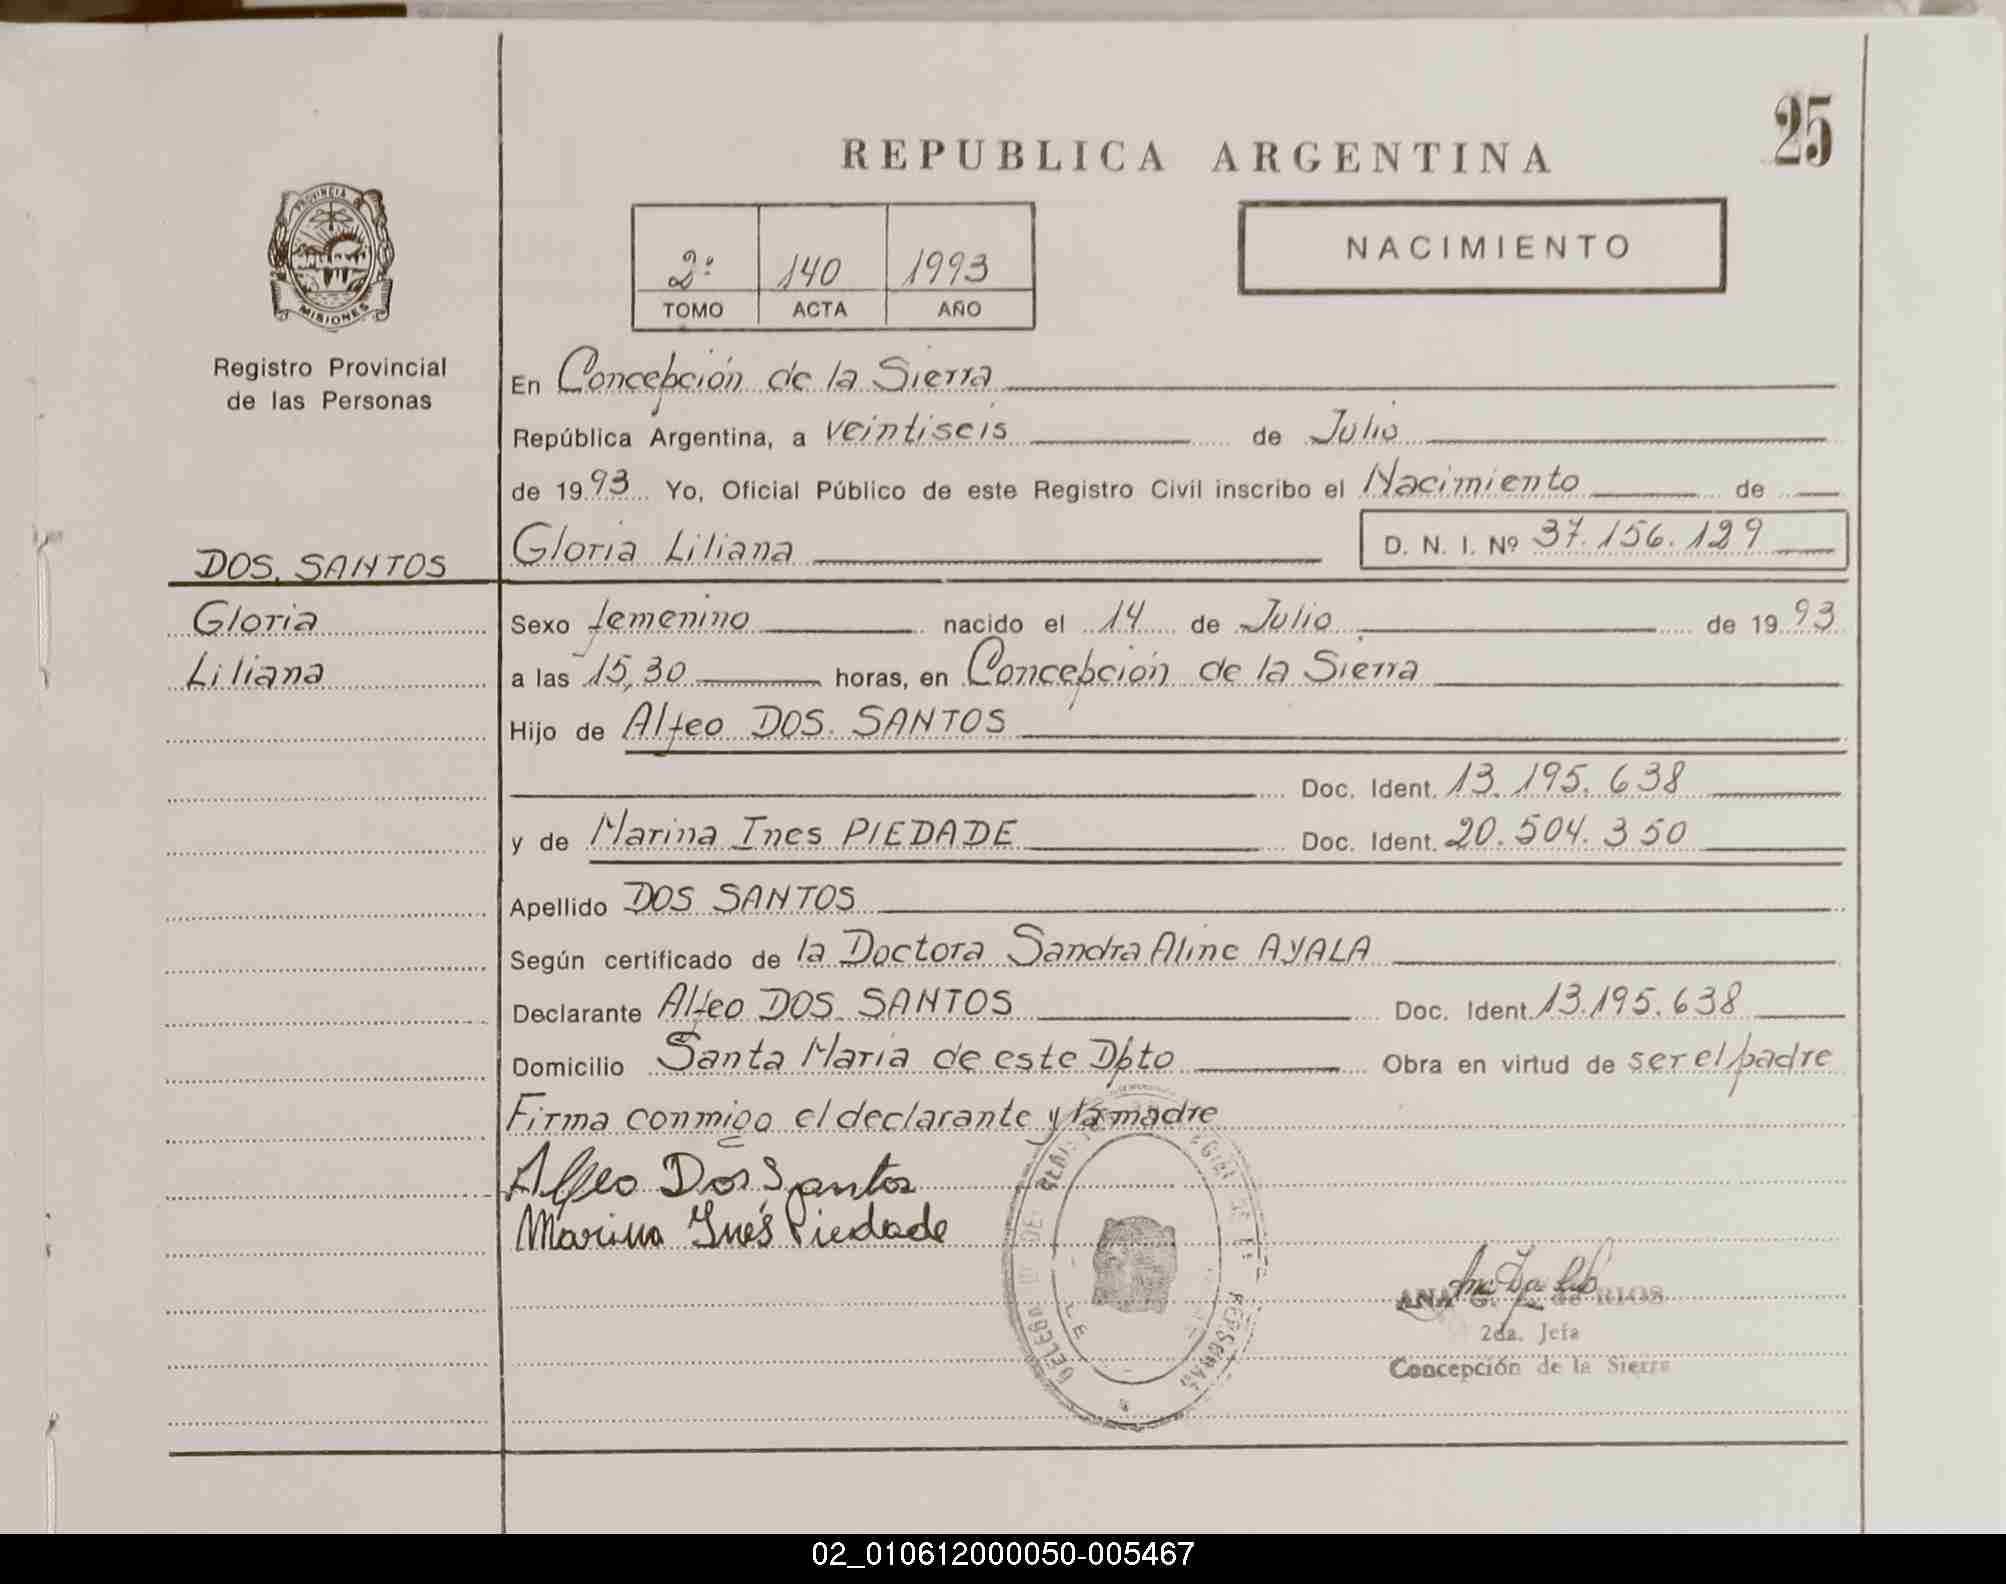 25
REPUBLICA ARGENTINA
PROVINCIA DE
MISIONES
2º 140 1993
TOMO ACTA AÑO
NACIMIENTO
Registro Provincial
de las Personas
En Concepción de la Sierra
República Argentina, a veintiseis de Julio
de 1993 Yo, Oficial Público de este Registro Civil inscribo el Nacimiento de
DOS SANTOS
Gloria Liliana D. N. I. Nº 37.156.129
Gloria
Liliana
Sexo femenino nacido el 14 de Julio de 1993
a las 15,30 horas, en Concepción de la Sierra
Hijo de Alfeo DOS SANTOS
Doc. Ident. 13.195.638
y de Marina Ines PIEDADE Doc. Ident. 20.504.350
Apellido DOS SANTOS
Según certificado de la Doctora Sandra Aline AYALA
Declarante Alfeo DOS SANTOS Doc. Ident. 13.195.638
Domicilio Santa Maria de este Dpto Obra en virtud de ser el padre
Firma conmigo el declarante y la madre
Alfeo Dos Santos
Marina Inés Piedade
ANA G. de RIOS
2da. Jefa
Concepción de la Sierra
02_010612000050-005467